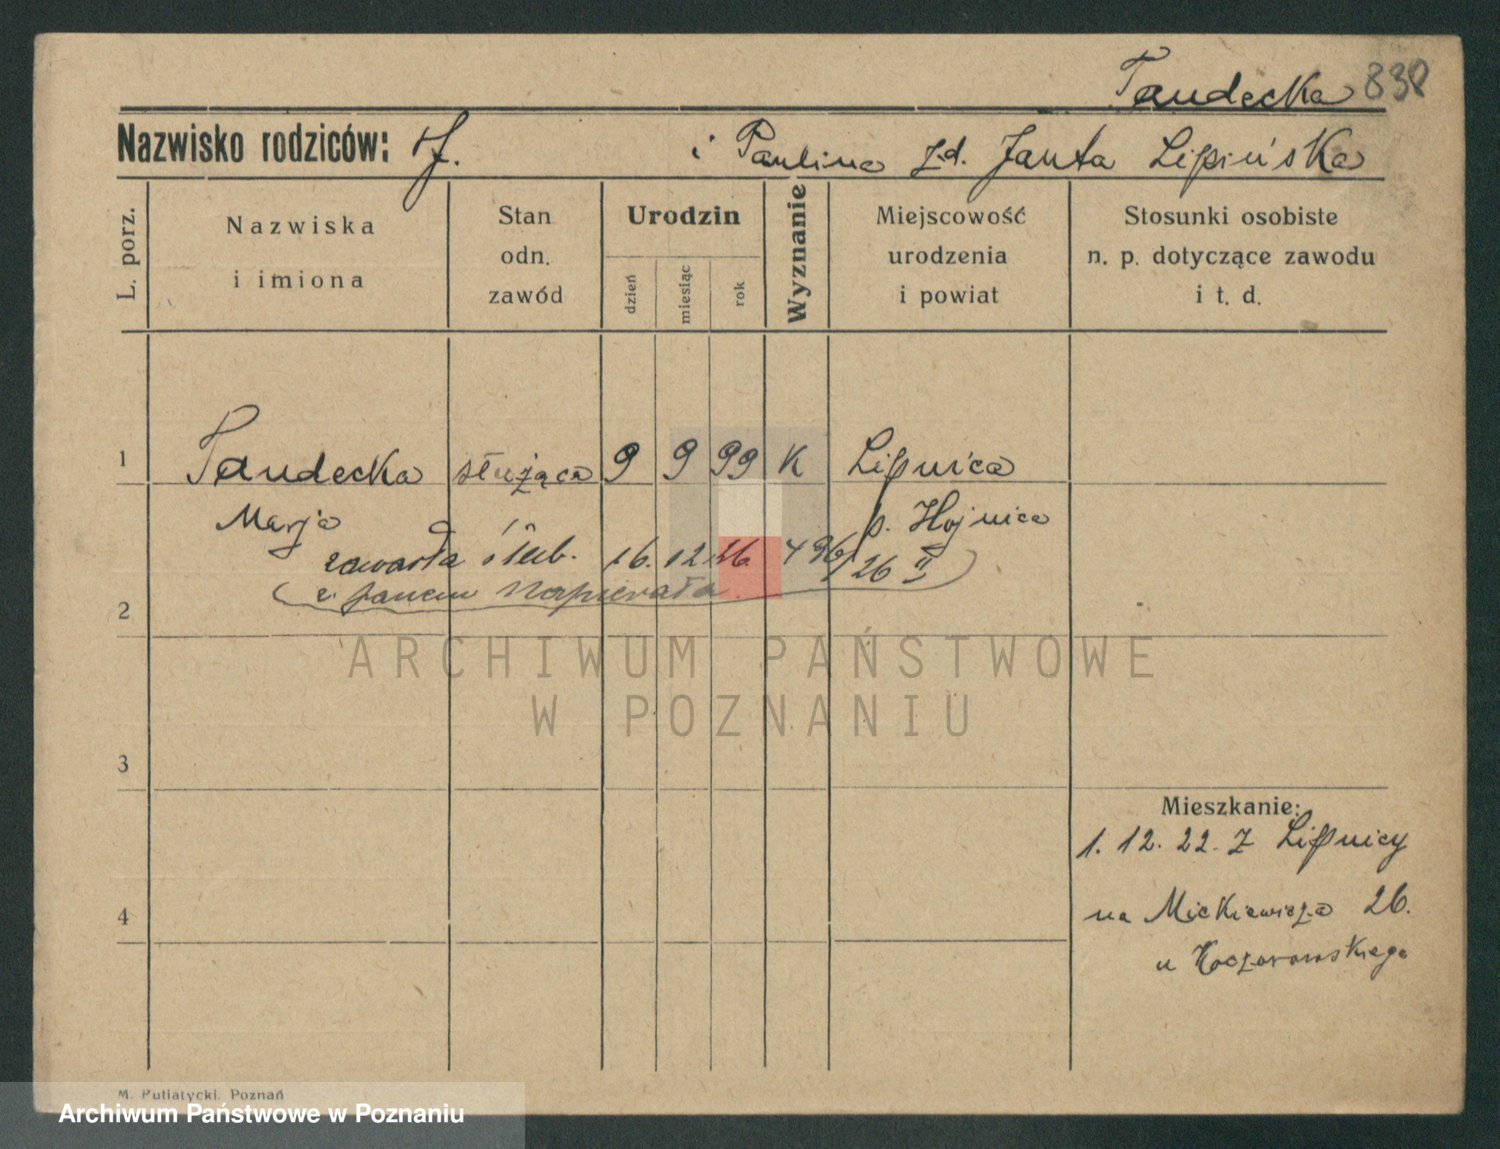 Tandecka 832
Nazwisko rodziców: J. i Paulina z d. Janta Lipińska
L. porz.
Nazwiska i imiona
Stan odn. zawód
Urodzin
dzień
miesiąc
rok
Wyznanie
Miejscowość urodzenia i powiat
Stosunki osobiste n. p. dotyczące zawodu i t. d.
1 Tandecka służąca 9 9 99 K Lipnica
Marja p. Hojnice
zawarła ślub. 16. 12. 26. 496/26 II
2 z panem Napierała
ARCHIWUM PAŃSTWOWE
W POZNANIU
3
Mieszkanie:
1. 12. 22. z Lipnicy
4 na Mickiewicza 26.
u Koczorowskiego
M. Putiatycki, Poznań
Archiwum Państwowe w Poznaniu